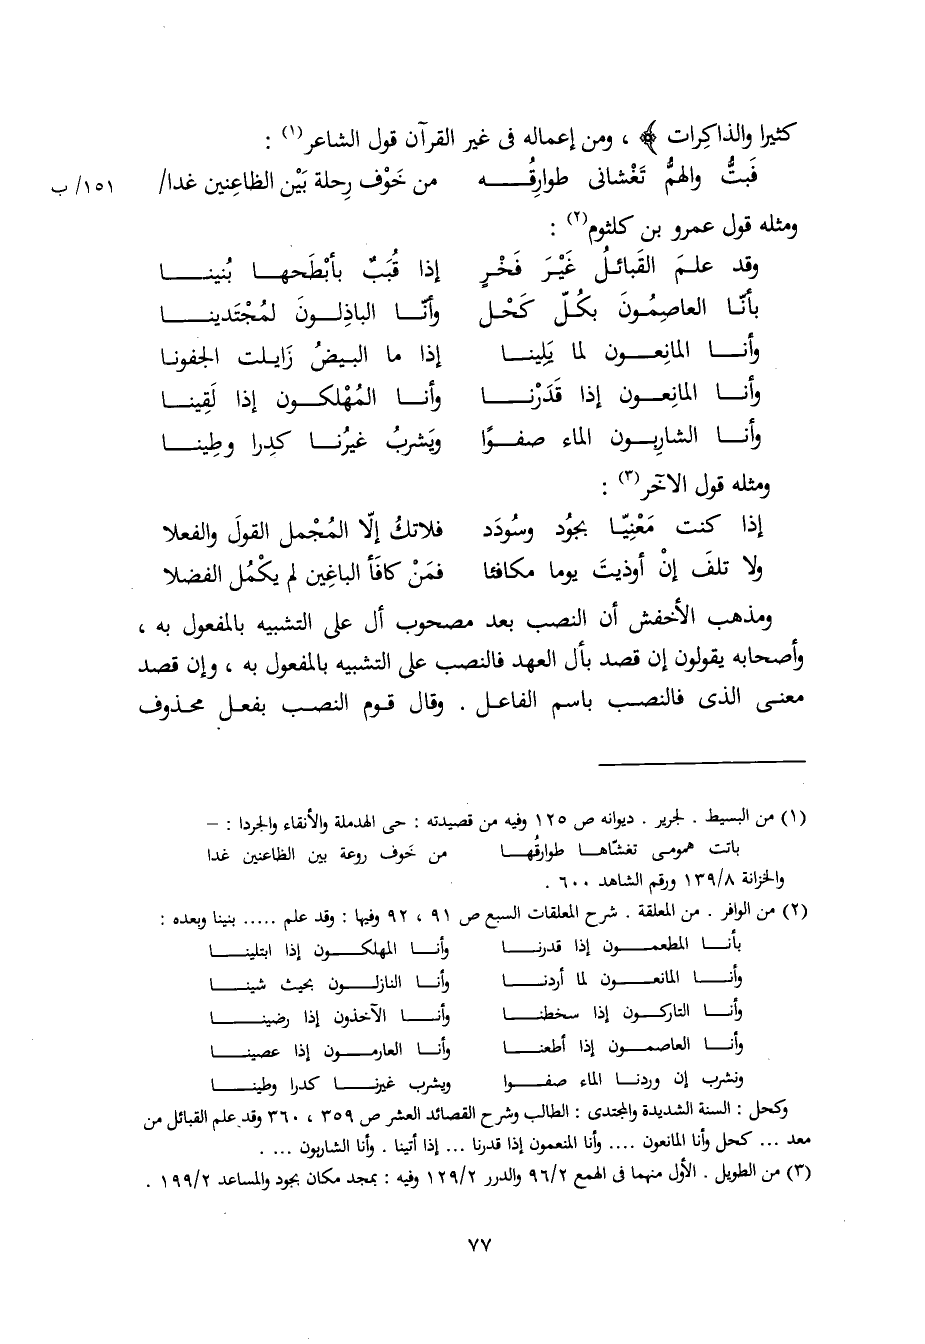 كثيرا والذاكِرات ﴾ ، ومن إعماله فى غير القرآن قول الشاعر(١) :
فَبتُّ والهمُّ تَغْشانى طوارِقُــــه من خَوْف رِحلة بَيْن الظاعِنين غدا/ ١٥١/ ب
ومثله قول عمرو بن كلثوم(٢) :
وقد علمَ القَبائلُ غَيْرَ فَخْرٍ إذا قُبَبٌ بأبْطَحهــا بُنينـــا
بأنّـا العاصِمُـونَ بكُـلّ كَحْـل وأنّــا الباذِلــونَ لمُجْتَدينــا
وأنــا المانِعــون لما يَلِينــا إذا ما البيضُ زَايلت الجفونا
وأنــا المانِعــون إذا قَدَرْنــا وأنــا المُهْلكــون إذا لَقِينــا
وأنــا الشارِبــون الماء صفــوًا ويَشربُ غيرُنــا كدِرا وطِينــا
ومثله قول الآخر(٣) :
إذا كنت مَعْنِيّـا بجُود وسُودَد فلاتكُ إلّا المُجْمل القولَ والفعلا
ولا تلفَ إنْ أوذيتَ يوما مكافئا فمَنْ كافَأ الباغِين لم يكْمُل الفضلا
ومذهب الأخفش أن النصب بعد مصحوب أل على التشبيه بالمفعول به ،
وأصحابه يقولون إن قصد بأل العهد فالنصب على التشبيه بالمفعول به ، وإن قصد
معنى الذى فالنصب باسم الفاعل . وقال قوم النصب بفعل محذوف
(١) من البسيط . لجرير . ديوانه ص ١٢٥ وفيه من قصيدته : حى الهدملة والأنقاء والجردا : –
باتت همومى تغشّاهــا طوارقُهــا من خَوف روعة بين الظاعنين غدا
والخزانة ١٣٩/٨ ورقم الشاهد ٦٠٠ .
(٢) من الوافر . من المعلقة . شرح المعلقات السبع ص ٩١ ، ٩٢ وفيها : وقد علم ..... بنينا وبعده :
بأنــا المطعمــون إذا قدرنــا وأنــا المهلكــون إذا ابتلينــا
وأنــا المانعــون لما أردنــا وأنــا النازلــون بحيث شينــا
وأنــا التاركــون إذا سخطنــا وأنــا الآخذون إذا رضينــا
وأنــا العاصمــون إذا أطعنــا وأنــا العارمــون إذا عصينــا
ونشرب إن وردنــا الماء صفــوا ويشرب غيرنــا كدرا وطينــا
وكحل : السنة الشديدة والمجتدى : الطالب وشرح القصائد العشر ص ٣٥٩ ، ٣٦٠ وقد علم القبائل من
معد ... كحل وأنا المانعون .... وأنا المنعمون إذا قدرنا ... إذا أتينا . وأنا الشاربون ... .
(٣) من الطويل . الأول منهما فى الهمع ٩٦/٢ والدرر ١٢٩/٢ وفيه : بمجد مكان بجود والمساعد ١٩٩/٢ .
٧٧